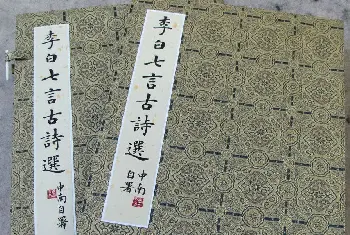 李白七言古詩選
申南自署
李白七言古詩選
申南
自署